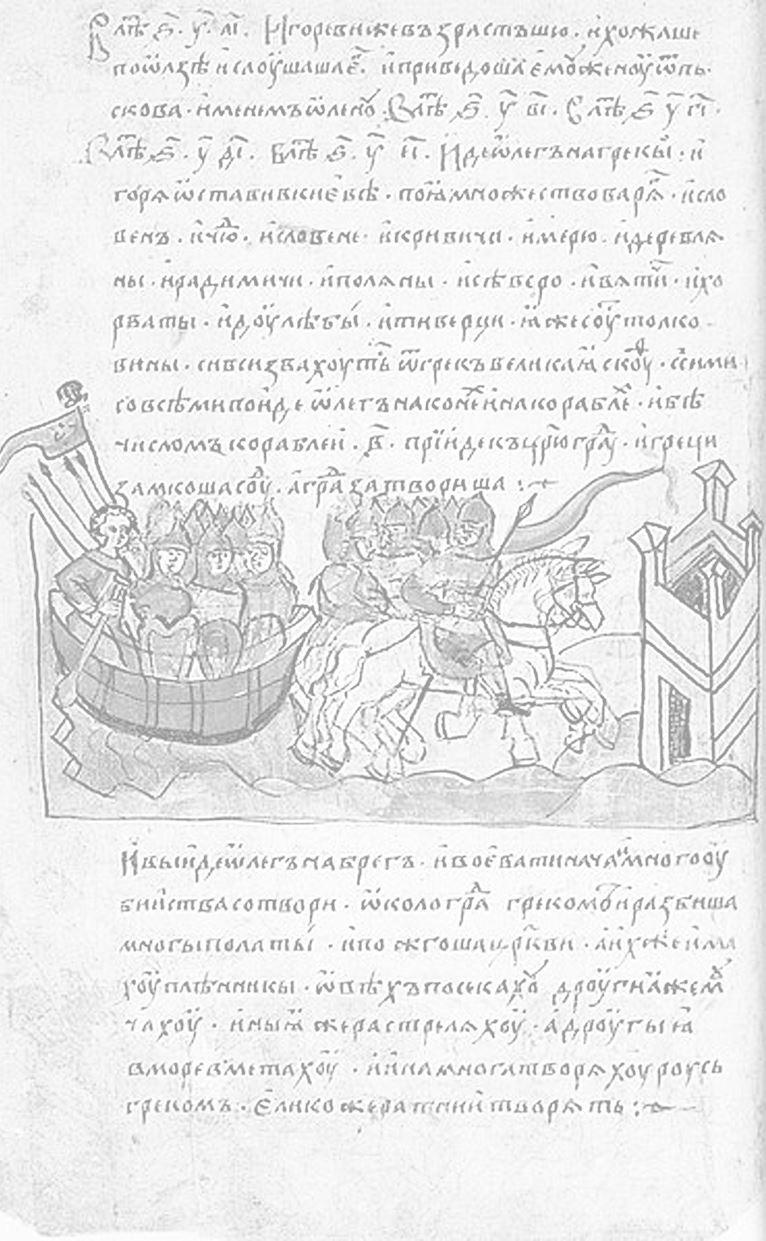 В лѣⷮ ҂ѕ҃. у҃. аі҃. Игореви же възрастъшю. и хожаше
по ѿлзѣ и слоушаша еⷢ҇. и приведоша ємоу женоу ѿ пь
скова. именемъ ѿленоу. В лѣⷮ ҂ѕ҃. у҃ ві҃. В лѣⷮ ҂ѕ҃ у҃ гі҃.
В лѣⷮ ҂ѕ҃. у҃ ді҃. В лѣⷮ ҂ѕ҃. у҃ еі҃. Иде ѿлегъ на грекы. и
горя ѡставив в киевѣ. поꙗ множество варяⷢ. и сло
венъ. и чюⷣ. и словене. и кривичи. и мерю. и деревля
ны. и радимичи. и поляны. и сѣверо. и вятиⷱ. и хо
рваты. и доулѣбы. и тиверци. ꙗже соуⷮ толко
вины. си вси звахоуть ѿ грекъ великаꙗ скоуⷴ. с сими
со всѣми поиде ѿлегъ на конеⷯ и на кораблеⷯ. и бѣ
числомъ кораблеи. в҃. приидекъ црⷭ҇ю граⷣ. и греци
замкоша соуⷣ. а граⷣ затвориша :~
И выиде ѿлегъ на брегъ. и воевати начаⷮ. и много оу
биства сотвори. ѡколо граⷣ грекомъ. и разбиша
многы полаты. и пожгоша црⷪ҇кви. а их же има
хоу плѣнникы. ѡвѣхъ посекахоу дроугиꙗ же моу
чахоу. иныꙗ же растреляхоу. а дроугыꙗ
в море вметахоу. и ина многа творяхоу роусь
грекомъ. Елико же ратнии творять :~